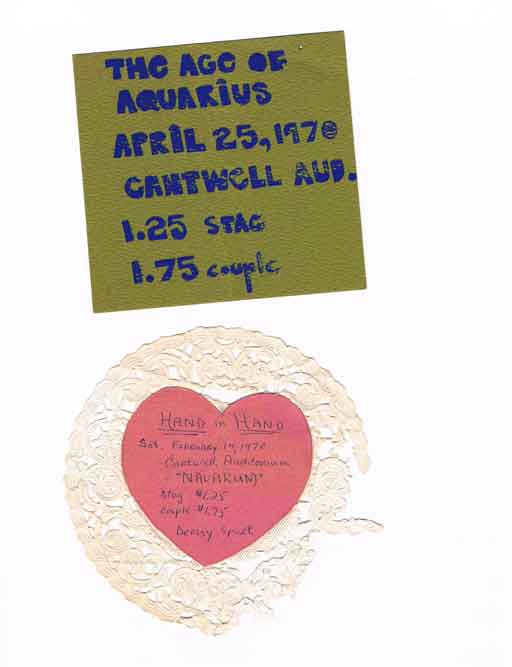 THE AGE OF
AQUARIUS
APRIL 25, 1970
CANTWELL AUD.
1.25 STAG
1.75 couple
HAND in HAND
Sat. February 14, 1970
Cantwell Auditorium
Stag $1.25
couple $1.75
Dressy Sport